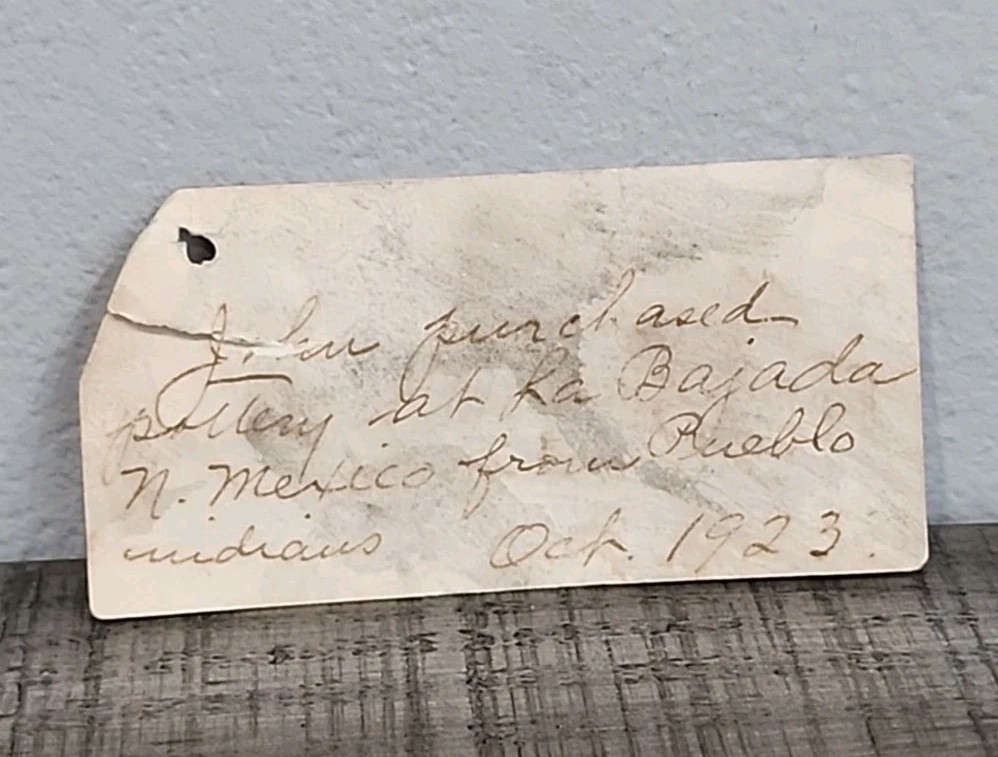 John purchased
pottery at La Bajada
N. Mexico from Pueblo
indians Oct. 1923.